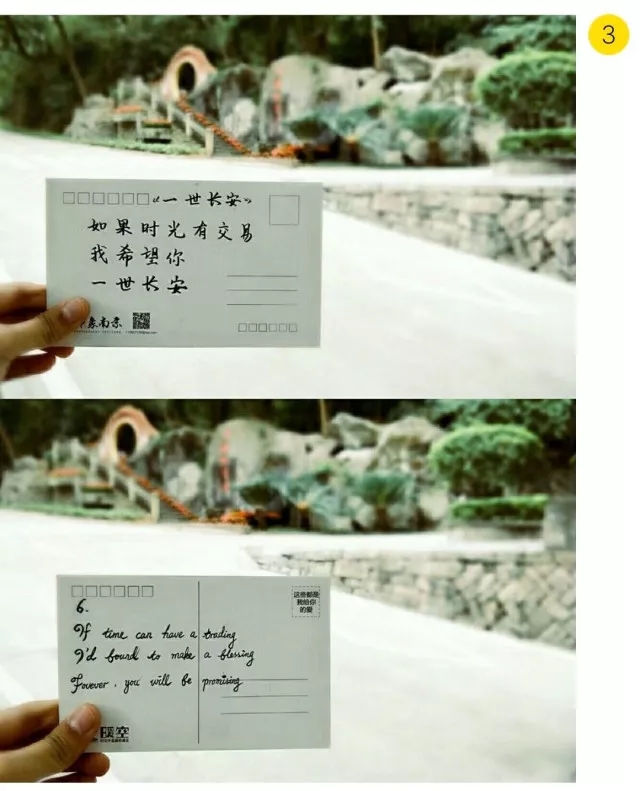 3
《一世长安》
如果时光有交易
我希望你
一世长安
象南京
这些都是
我给你
的爱
6.
If time can have a trading
I'd bound to make a blessing
Forever, you will be promising